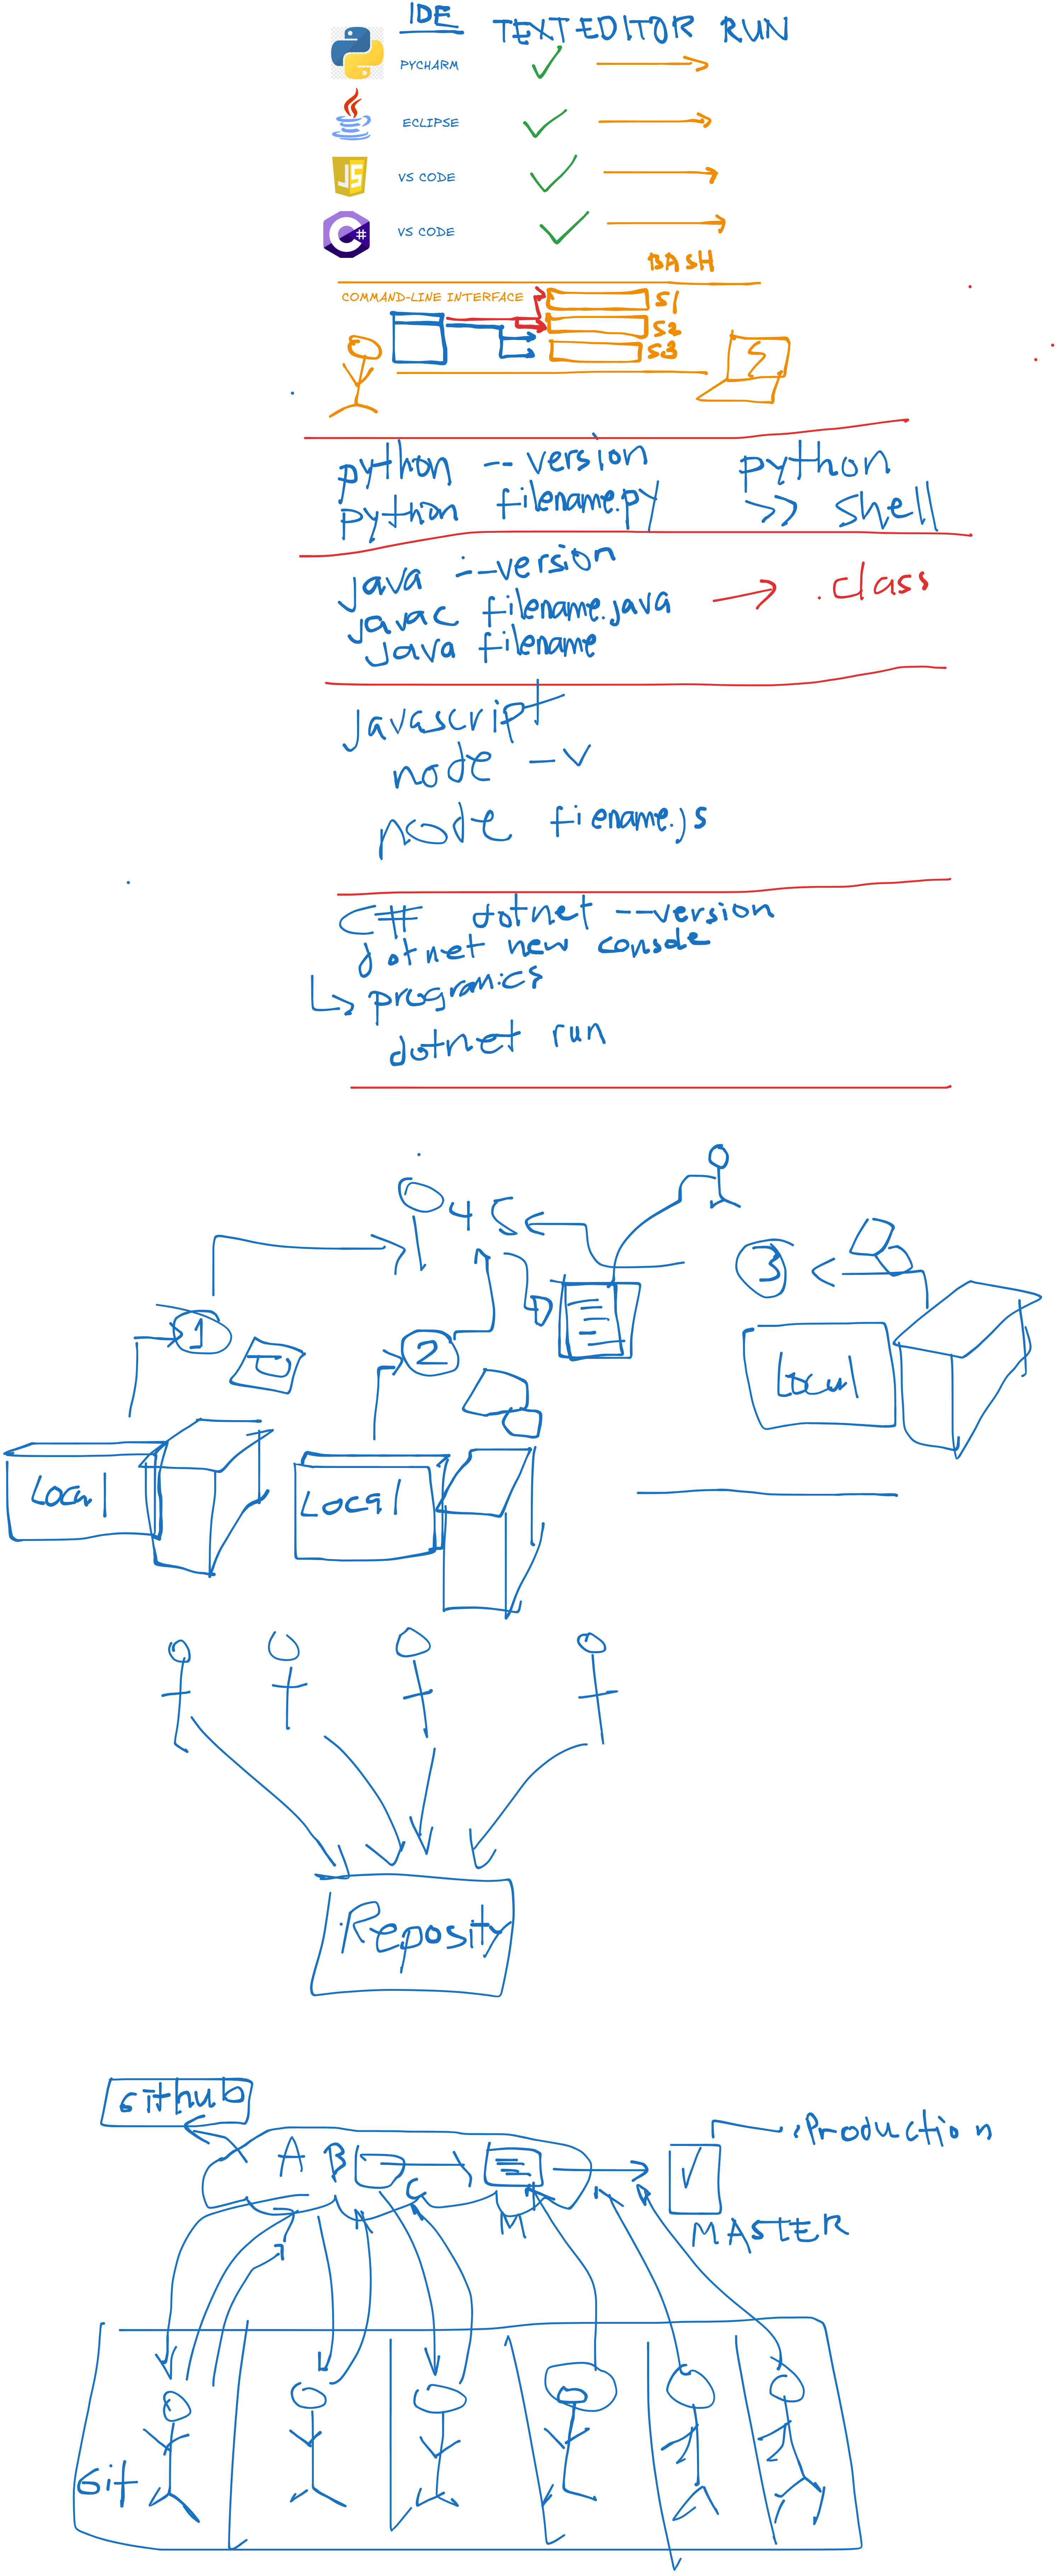 IDE TEXT EDITOR RUN
PYCHARM
ECLIPSE
JS VS CODE
C# VS CODE
BASH
COMMAND-LINE INTERFACE S1
S2
S3
python --version python
python filename.py >> shell
java --version
javac filename.java → .class
java filename
javascript
node -v
node fiename.js
C# dotnet --version
dotnet new console
program.cs
dotnet run
4
3
1
2
Local
Local
Local
Reposity
Github
Production
A B
C
M
MASTER
Git